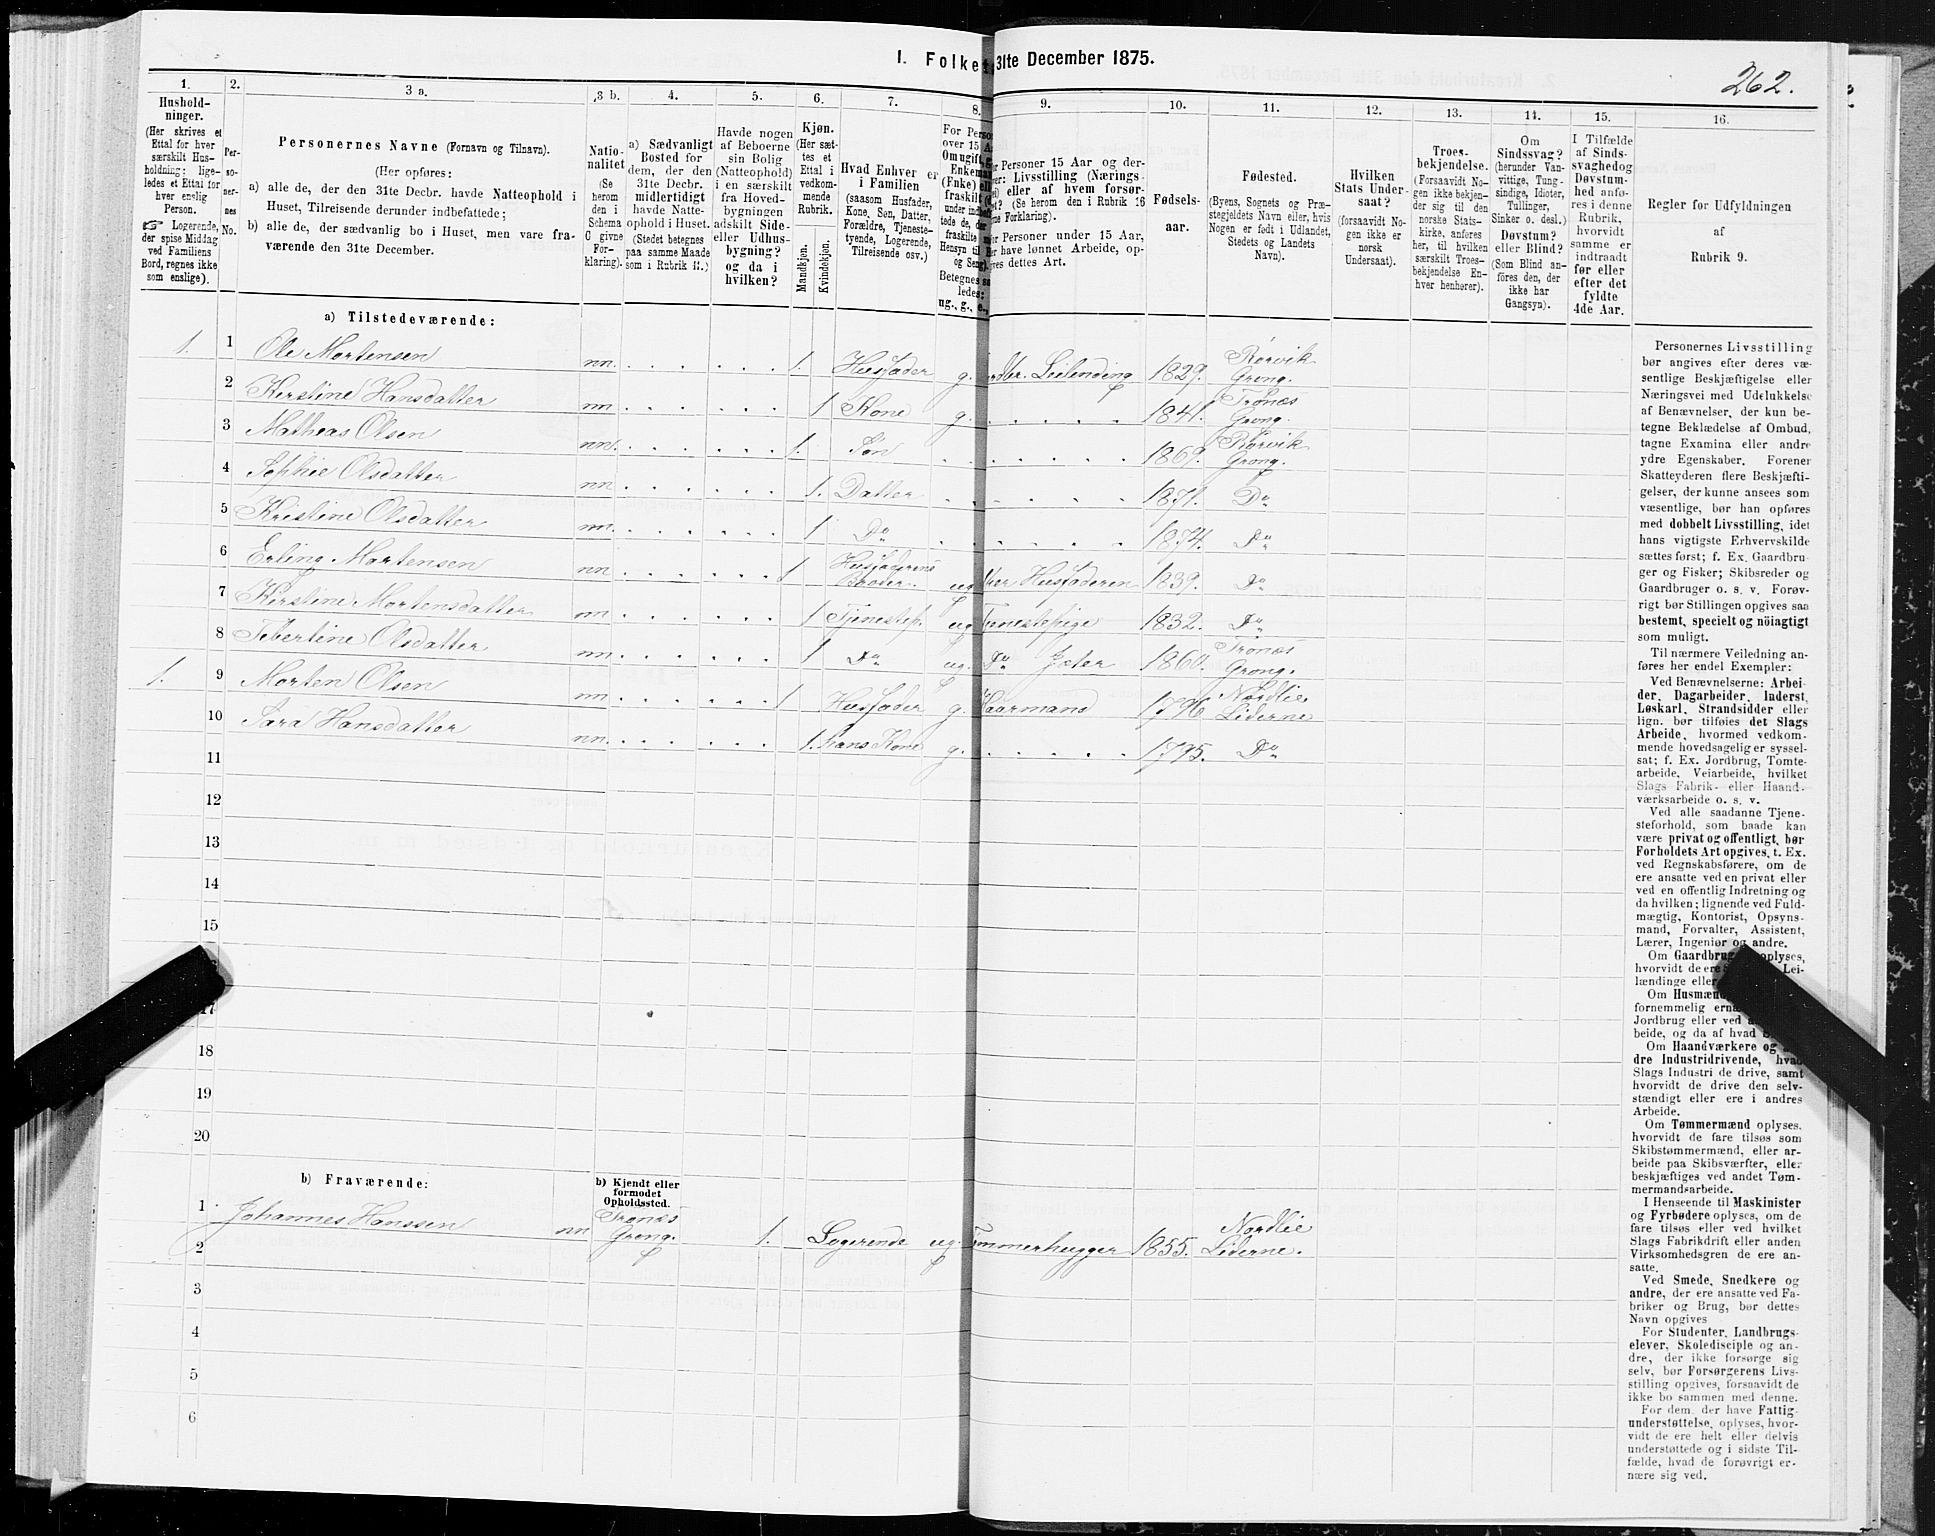 1. Folke 31te December 1875.
262.
1. 2. 3 a. 3 b. 4. 5. 6. 7. 8. 9. 10. 11. 12. 13. 14. 15. 16.
Hushold-
ninger.
(Her skrives et
Ettal for hver
særskilt Hus-
holdning; lige-
ledes et Ettal for
hver enslig
Person.
Logerende,
der spise Middag
ved Familiens
Bord, regnes ikke
som enslige).
Per-
so-
ner-
nes
No.
Personernes Navne (Fornavn og Tilnavn).
(Her opføres:
a) alle de, der den 31te Decbr. havde Natteophold i
Huset, Tilreisende derunder indbefattede;
b) alle de, der sædvanlig bo i Huset, men vare fra-
værende den 31te December.
Natio-
nalitet
(Se
herom
den i
Schema
C givne
For-
klaring).
a) Sædvanligt
Bosted for
dem, der den
31te Decbr.
midlertidigt
havde Natte-
ophold i Huset.
(Stedet betegnes
paa samme Maade
som i Rubrik 11.)
Havde nogen
af Beboerne
sin Bolig
(Natteophold)
i en særskilt
fra Hoved-
bygningen
adskilt Side-
eller Udhus-
bygning?
og da i
hvilken?
Kjøn.
(Her sæt-
tes et
Ettal i
vedkom-
mende
Rubrik.
Mandkjøn.
Kvindekjøn.
Hvad Enhver er
i Familien
(saasom Husfader,
Kone, Søn, Datter,
Forældre, Tjeneste-
tyende, Logerende,
Tilreisende osv.)
For Perso
over 15 A
Om ugift, g
Enkeman
(Fnke) ell
fraskilt (d
under indbe
tede de, de
fraskilte m
Hensyn til
og Seng).
Betegnes sa
ledes:
ug., g., e.,
Personer 15 Aar og der-
Livsstilling (Nærings-
eller af hvem forsør-
(Se herom den i Rubrik 16
Forklaring).
Personer under 15 Aar,
have lønnet Arbeide, op-
dettes Art.
Fødsels-
aar.
Fødested.
(Byens, Sognets og Præ-
stegjeldets Navn eller, hvis
Nogen er født i Udlandet,
Stedets og Landets
Navn).
Hvilken
Stats Under-
saat?
(forsaavidt No-
gen ikke er
norsk
Undersaat).
Troes-
bekjendelse.
(Forsaavidt No-
gen ikke bekjen-
der sig til den
norske Stats-
kirke, anføres
her, til hvilken
særskilt Troes-
bekjendelse En-
hver henhører).
Om
Sindssvag?
(herunder Van-
vittige, Tung-
sindige, Idioter,
Tullinger,
Sinker o. desl.)
Døvstum?
eller Blind?
(Som Blind an-
føres den, der
ikke har
Gangsyn).
I Tilfælde
af Sinds-
svaghed og
Døvstum-
hed anfø-
res i denne
Rubrik,
hvorvidt
samme er
indtraadt
før eller
efter det
fyldte
4de Aar.
Regler for Udfyldningen
af
Rubrik 9.
a) Tilstedeværende:
1. 1 Ole Mortensen nn. 1. Husfader g. Leilending 1829. Rørvik Grong.
2 Kerstine Hansdatter nn 1 Kone g. 1841. Trones Grong.
3 Matheas Olsen nn. 1. Søn 1869. Rørvik Grong.
4 Sophie Olsdatter nn 1. Datter 1871. Do
5 Kristine Olsdatter nn. 1 Do 1874. Do
6 Erling Mortensen nn 1 Husfaderens Broder. ug Husfaderen 1839. Do
7 Kerstine Mortensdatter nn 1 Tjenestep. ug Tjenestepige 1832. Do
8 Olsdatter nn 1 Do ug. Do Jeter 1860. Trones Grong.
1. 9 Morten Olsen nn 1 Husfader g. Kaarmand 1796 Nordlie Lierne
10 Sara Hansdatter nn. 1. hans Kone g. 1795. Do
11
12
13
14
15
17
18
19
20
b) Fraværende:
b) Kjendt eller
formodet
Opholdssted.
1 Johannes Hanssen nn Trones Grong. 1. Logerende ug. Tømmerhugger 1855. Nordlie Lierne.
2
3
4
5
6
Personernes Livsstilling
bør angives efter deres væ-
sentlige Beskjæftigelse eller
Næringsvei med Udelukkelse
af Benævnelser, der kun be-
tegne Beklædelse af Ombud,
tagne Examina eller andre
ydre Egenskaber. Forener
Skatteyderen flere Beskjæfti-
gelser, der kunne ansees som
væsentlige, bør han opføres
med dobbelt Livsstilling, idet
hans vigtigste Erhvervskilde
sættes først; f. Ex. Gaardbru-
ger og Fisker; Skibsreder og
Gaardbruger o. s. v. Forøv-
rigt bør Stillingen opgives saa
bestemt, specielt og nöiagtigt
som muligt.
Til nærmere Veiledning an-
føres her endel Exempler:
Ved Benævnelserne: Arbei-
der, Dagarbeider, Inderst,
Løskarl, Strandsidder eller
lign. bør tilføies det Slags
Arbeide, hvormed vedkom-
mende hovedsagelig er syssel-
sat; f. Ex. Jordbrug, Tomte-
arbeide, Veiarbeide, hvilket
Slags Fabrik- eller Haand-
værksarbeide o. s. v.
Ved alle saadanne Tjene-
steforhold, som baade kan
være privat og offentligt, bør
Forholdets Art opgives, t. Ex.
ved Regnskabsførere, om de
ere ansatte ved en privat eller
ved en offentlig Indretning og
da hvilken; lignende ved Fuld-
mægtig, Kontorist, Opsyns-
mand, Forvalter, Assistent,
Lærer, Ingeniør og andre.
Om Gaardbrug oplyses,
hvorvidt de ere Lei-
lændinge eller
Om Husmænd
fornemmelig
Jordbrug eller ved
beide, og da af hvad
Om Haandværkere og
dre Industridrivende, hvad
Slags Industri de drive, samt
hvorvidt de drive den selv-
stændigt eller ere i andres
Arbeide.
Om Tømmermænd oplyses,
hvorvidt de fare tilsøs som
Skibstømmermænd, eller ar-
beide paa Skibsværfter, eller
beskjæftiges ved andet Tøm-
mermandsarbeide.
I Henseende til Maskinister
og Fyrbødere oplyses, om de
fare tilsøs eller ved hvilket
Slags Fabrikdrift eller anden
Virksomhedsgren de ere an-
satte.
Ved Smede, Snedkere og
andre, der ere ansatte ved Fa-
briker og Brug, bør dettes
Navn opgives
For Studenter, Landbrugs-
elever, Skoledisciple og an-
dre, der ikke forsørge sig
selv, bør Forsørgerens Livs-
stilling opgives, forsaavidt de
ikke bo sammen med denne.
For dem, der have Fattig-
understøttelse, oplyses, hvor-
vidt de ere helt eller delvis
understøttede og i sidste Til-
fælde, hvad de forøvrigt er-
nære sig ved.